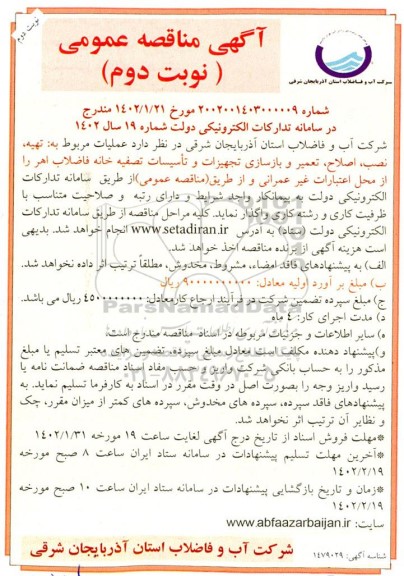 نوبت دوم
شرکت آب و فاضلاب استان آذربایجان شرقی
آگهی مناقصه عمومی
( نوبت دوم)
شماره ۲۰۰۲۰۰۱۴۰۳۰۰۰۰۰۹ مورخ ۱۴۰۲/۱/۲۱ مندرج
در سامانه تدارکات الکترونیکی دولت شماره ۱۹ سال ۱۴۰۲
شرکت آب و فاضلاب استان آذربایجان شرقی در نظر دارد عملیات مربوط به: تهیه،
نصب، اصلاح، تعمیر و بازسازی تجهیزات و تأسیسات تصفیه خانه فاضلاب اهر را
از محل اعتبارات غیر عمرانی و از طریق(مناقصه عمومی)از طریق سامانه تدارکات
الکترونیکی دولت به پیمانکار واجد شرایط و دارای رتبه و صلاحیت متناسب با
ظرفیت کاری و رشته کاری واگذار نماید. کلیه مراحل مناقصه از طریق سامانه تدارکات
الکترونیکی دولت (ستاد) به آدرس www.setadiran.ir انجام خواهد شد. بدیهی
است هزینه آگهی از برنده مناقصه اخذ خواهد شد.
الف) به پیشنهادهای فاقد امضاء، مشروط، مخدوش، مطلقاً ترتیب اثر داده نخواهد شد.
ب) مبلغ بر آورد اولیه معادل: ۹۰۰۰۰۰۰۰۰۰۰ ریال
ج) مبلغ سپرده تضمین شرکت در فرآیند ارجاع کار معادل: ۴۵۰۰۰۰۰۰۰۰ ریال می باشد.
د) مدت اجرای کار: ۴ ماه
ه) سایر اطلاعات و جزئیات مربوطه در اسناد مناقصه مندرج است.
و)پیشنهاد دهنده مکلف است معادل مبلغ سپرده، تضمین های معتبر تسلیم یا مبلغ
مذکور را به حساب بانکی شرکت واریز و حسب مفاد اسناد مناقصه ضمانت نامه یا
رسید واریز وجه را بصورت اصل در وقت مقرر در اسناد به کارفرما تسلیم نماید. به
پیشنهادهای فاقد سپرده، سپرده های مخدوش، سپرده های کمتر از میزان مقرر، چک
و نظایر آن ترتیب اثر نخواهد شد.
*مهلت فروش اسناد از تاریخ درج آگهی لغایت ساعت ۱۹ مورخه ۱۴۰۲/۱/۳۱
*آخرین مهلت تسلیم پیشنهادات در سامانه ستاد ایران ساعت ۸ صبح مورخه
۱۴۰۲/۲/۱۹
*زمان و تاریخ بازگشایی پیشنهادات در سامانه ستاد ایران ساعت ۱۰ صبح مورخه
۱۴۰۲/۲/۱۹
سایت: www.abfaazarbaijan.ir
شرکت آب و فاضلاب استان آذربایجان شرقی
شناسه آگهی: ۱۴۷۹۰۲۹